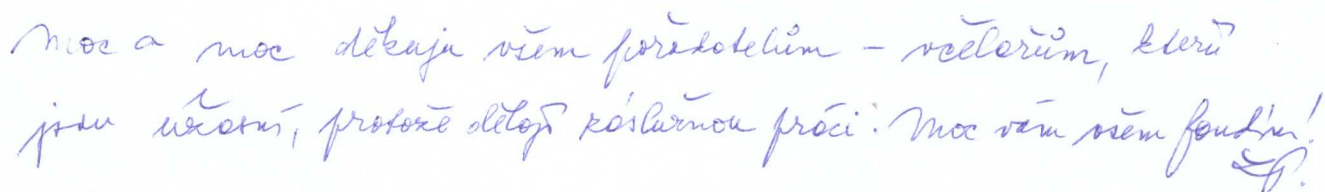 Moc a moc děkuju všem pořadatelům – včelařům, kteří
jsou úžasní, protože dělají záslužnou práci. Moc vám všem fandím!